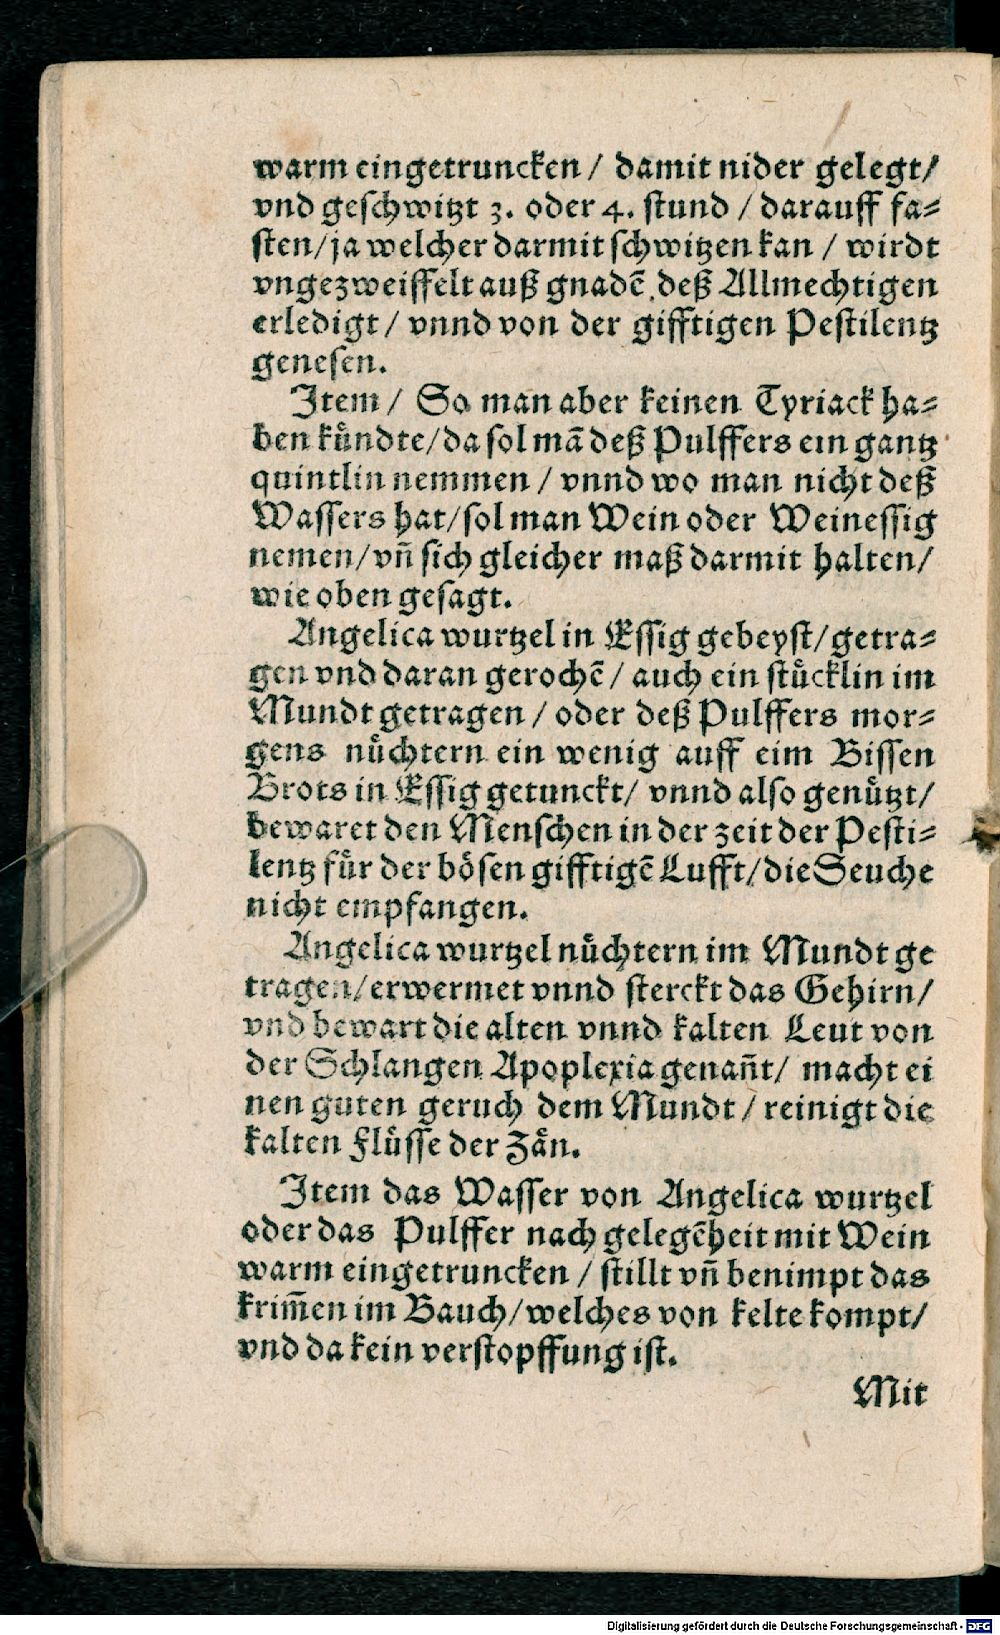 warm eingetruncken / damit nider gelegt/
vnd geschwitzt 3. oder 4. stund / darauff fa-
sten/ ja welcher darmit schwitzen kan / wirdt
vngezweiffelt auß gnadẽ deß Allmechtigen
erledigt / vnnd von der gifftigen Pestilentz
genesen.
Item / So man aber keinen Tyriack ha-
ben kuͤndte/ da sol mã deß Pulffers ein gantz
quintlin nemmen / vnnd wo man nicht deß
Wassers hat/ sol man Wein oder Weinessig
nemen/ vñ sich gleicher maß darmit halten/
wie oben gesagt.
Angelica wurtzel in Essig gebeyst/ getra-
gen vnd daran gerochẽ / auch ein stuͤcklin im
Mundt getragen / oder deß Pulffers mor-
gens nuͤchtern ein wenig auff eim Bissen
Brots in Essig getunckt/ vnnd also genuͤtzt/
bewaret den Menschen in der zeit der Pesti-
lentz fuͤr der boͤsen gifftigẽ Lufft/ die Seuche
nicht empfangen.
Angelica wurtzel nuͤchtern im Mundt ge
tragen/ erwermet vnnd sterckt das Gehirn/
vnd bewart die alten vnnd kalten Leut von
der Schlangen Apoplexia genañt/ macht ei
nen guten geruch dem Mundt / reinigt die
kalten Fluͤsse der Zaͤn.
Item das Wasser von Angelica wurtzel
oder das Pulffer nach gelegẽheit mit Wein
warm eingetruncken / stillt vñ benimpt das
krim̃en im Bauch/ welches von kelte kompt/
vnd da kein verstopffung ist.
Mit
Digitalisierung gefördert durch die Deutsche Forschungsgemeinschaft - DFG